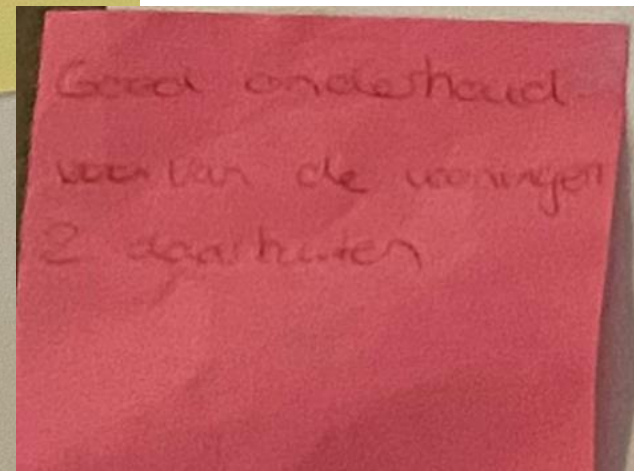 Goed onderhoud
van de woningen
& daarbuiten